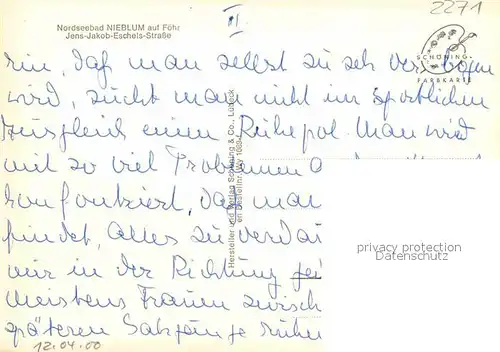 2271
II
Nordseebad NIEBLUM auf Föhr
Jens-Jakob-Eschels-Straße
SCHÖNING
FARBKARTE
rin, daß man selbst zu sehr verbogen
wird, sucht man nicht im sportlichen
Ausgleich einen Ruhepol. Man wird
mit so viel Problemen
konfrontiert, daß man
findet, alles zu verdau
wir in der Richtung
meistens Frauen zwisch
späteren
Hersteller und Verlag Schöning & Co., Lübeck
privacy protection
Datenschutz
12.04.00